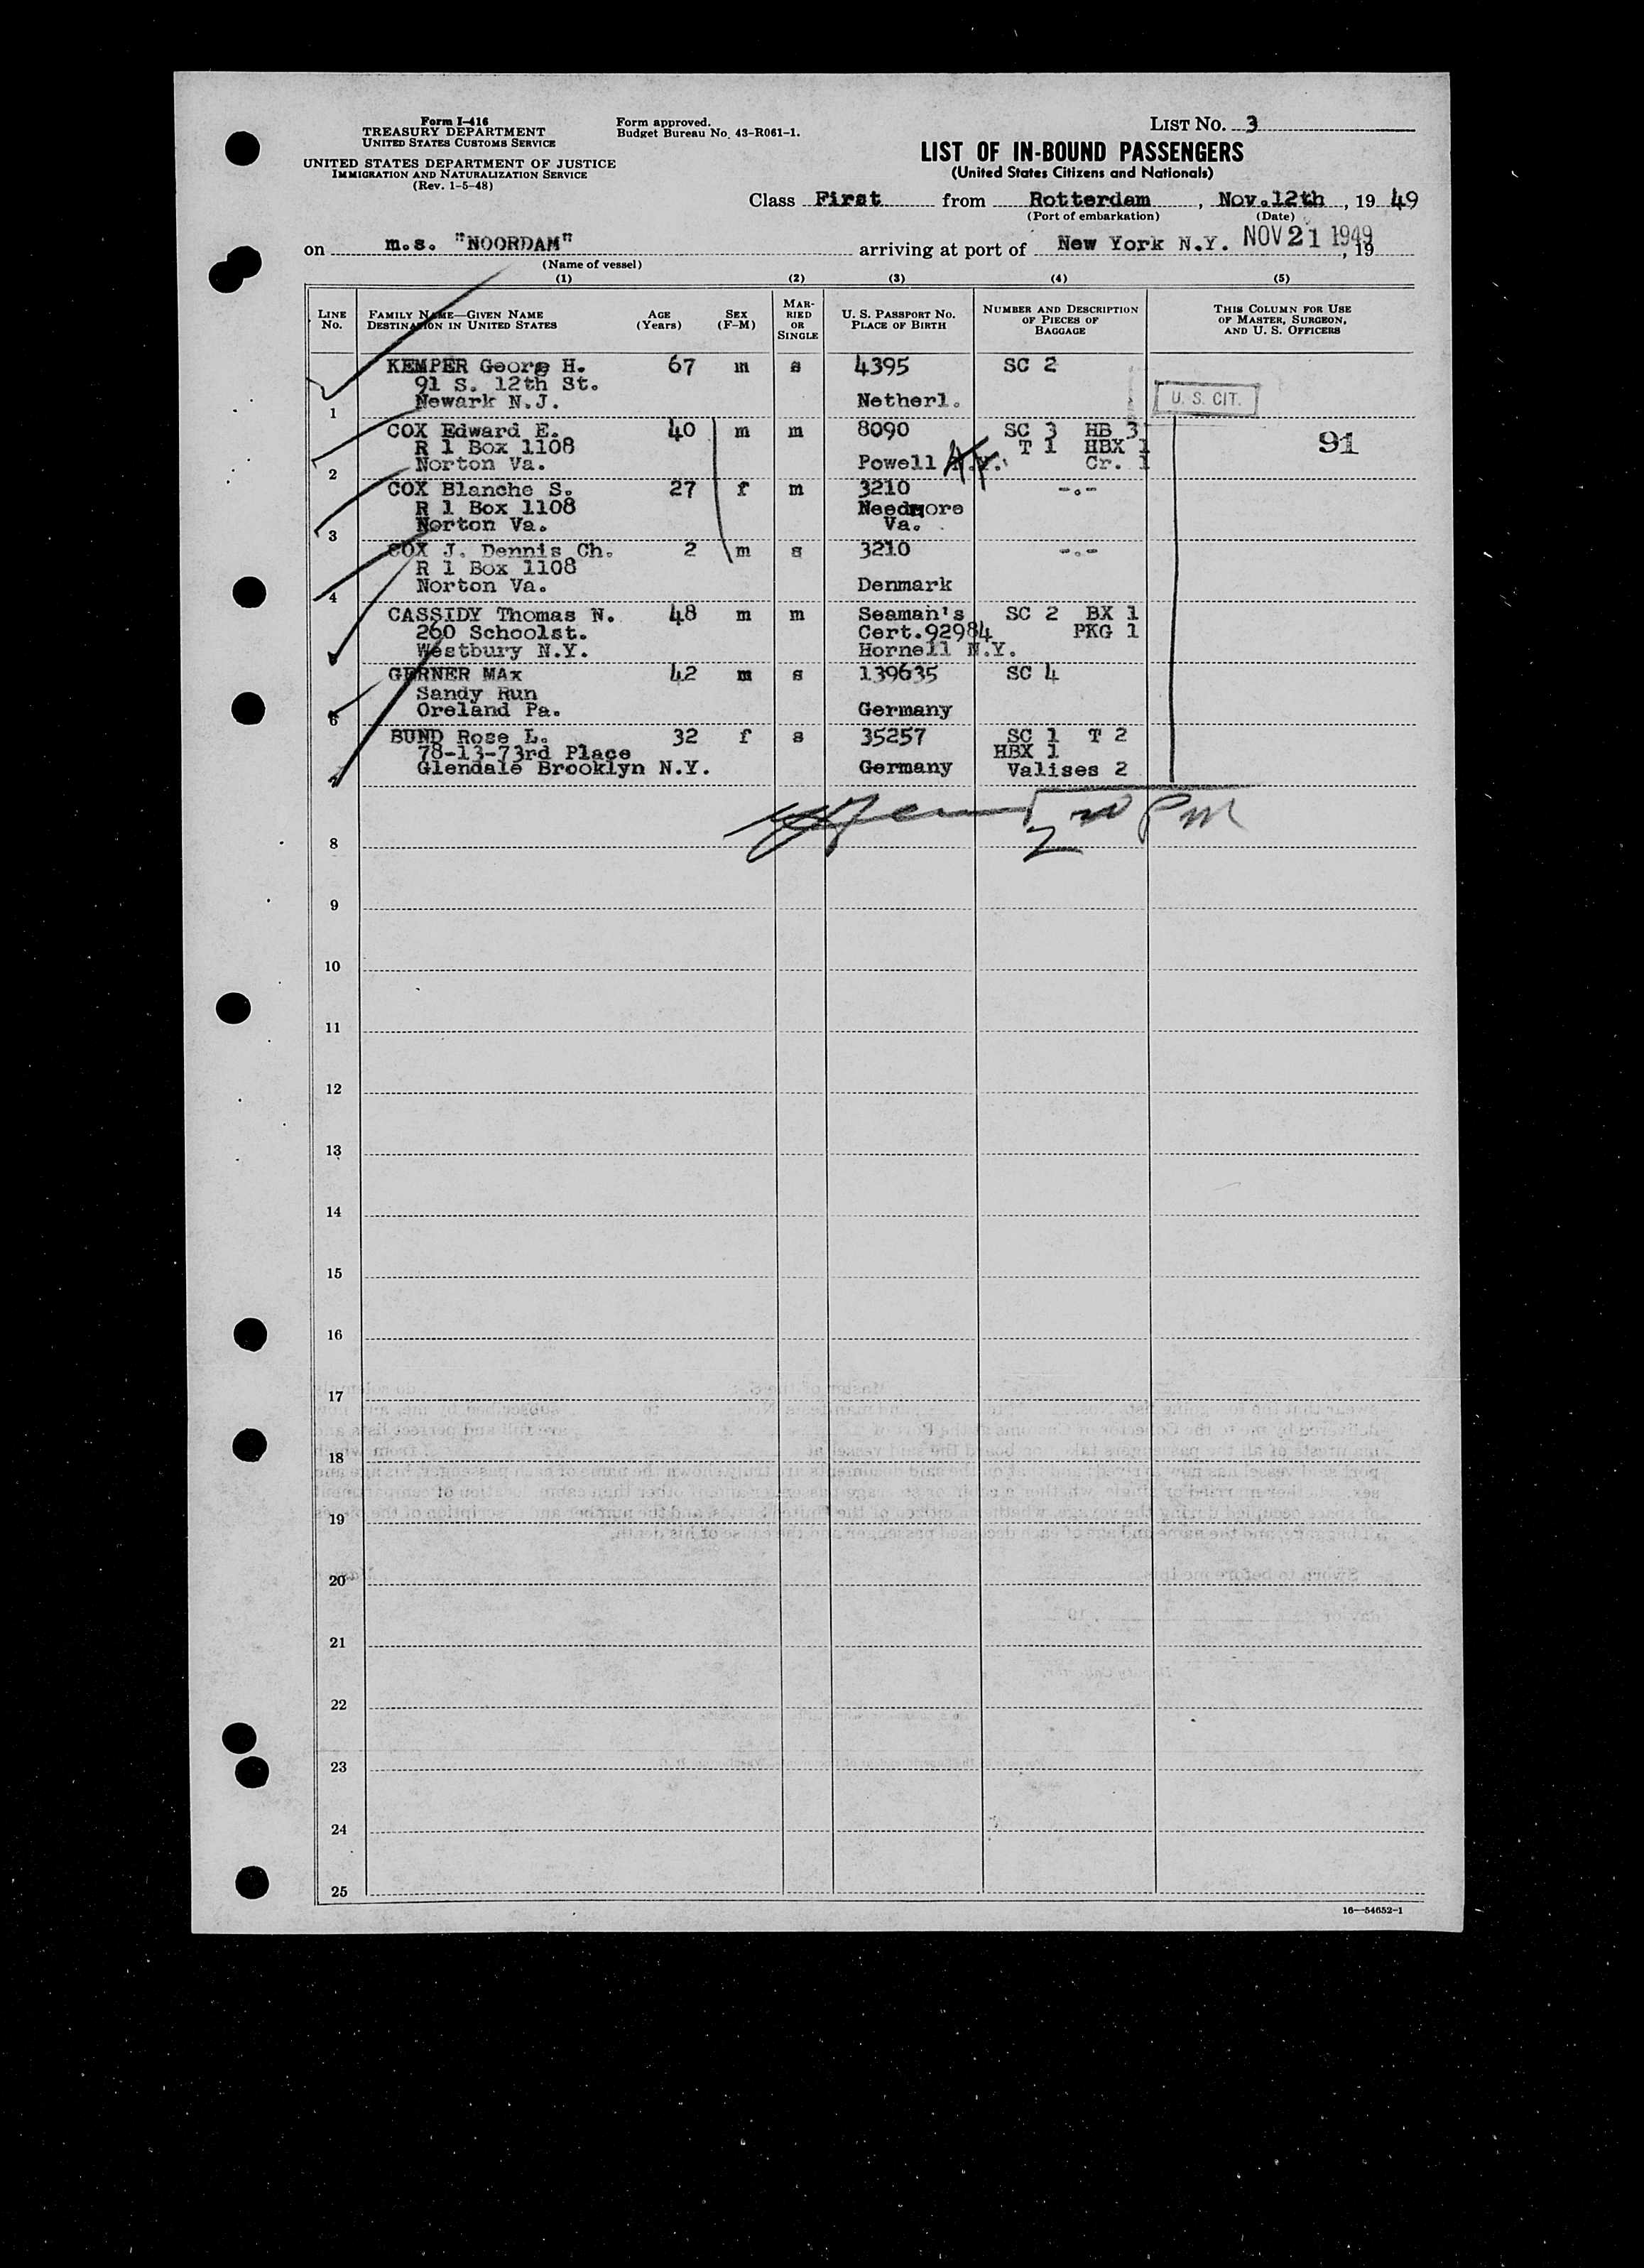 Form I-416
TREASURY DEPARTMENT
UNITED STATES CUSTOMS SERVICE
UNITED STATES DEPARTMENT OF JUSTICE
IMMIGRATION AND NATURALIZATION SERVICE
(Rev. 1-5-48)
Form approved.
Budget Bureau No. 43-R061-1.
LIST NO. 3
LIST OF IN-BOUND PASSENGERS
(United States Citizens and Nationals)
Class First from Rotterdam, Nov.12th, 19 49
(Port of embarkation) (Date)
on m.s. "NOORDAM" arriving at port of New York N.Y. NOV 21 1949, 19
(Name of vessel)
(1) (2) (3) (4) (5)
LINE No. FAMILY NAME—GIVEN NAME DESTINATION IN UNITED STATES AGE (Years) SEX (F-M) MARRIED OR SINGLE U. S. PASSPORT NO. PLACE OF BIRTH NUMBER AND DESCRIPTION OF PIECES OF BAGGAGE THIS COLUMN FOR USE OF MASTER, SURGEON, AND U. S. OFFICERS
KEMPER Georg H. 67 m s 4395 SC 2
91 S. 12th St.
1 Newark N.J. Netherl. U. S. CIT.
COX Edward E. 40 m m 8090 SC 3 HB 3
R 1 Box 1108 T 1 HBX 1 91
2 Norton Va. Powell N.Y. Cr. 1
COX Blanche S. 27 f m 3210 -.-
R 1 Box 1108 Needmore
3 Norton Va. Va.
COX J. Dennis Ch. 2 m s 3210 -.-
R 1 Box 1108
4 Norton Va. Denmark
CASSIDY Thomas N. 48 m m Seaman's SC 2 BX 1
260 Schoolst. Cert.92984 PKG 1
5 Westbury N.Y. Hornell N.Y.
GERNER MAx 42 m s 139635 SC 4
Sandy Run
6 Oreland Pa. Germany
BUND Rose L. 32 f s 35257 SC 1 T 2
78-13-73rd Place HBX 1
7 Glendale Brooklyn N.Y. Germany Valises 2
8
9
10
11
12
13
14
15
16
17
18
19
20
21
22
23
24
25
16—54652-1